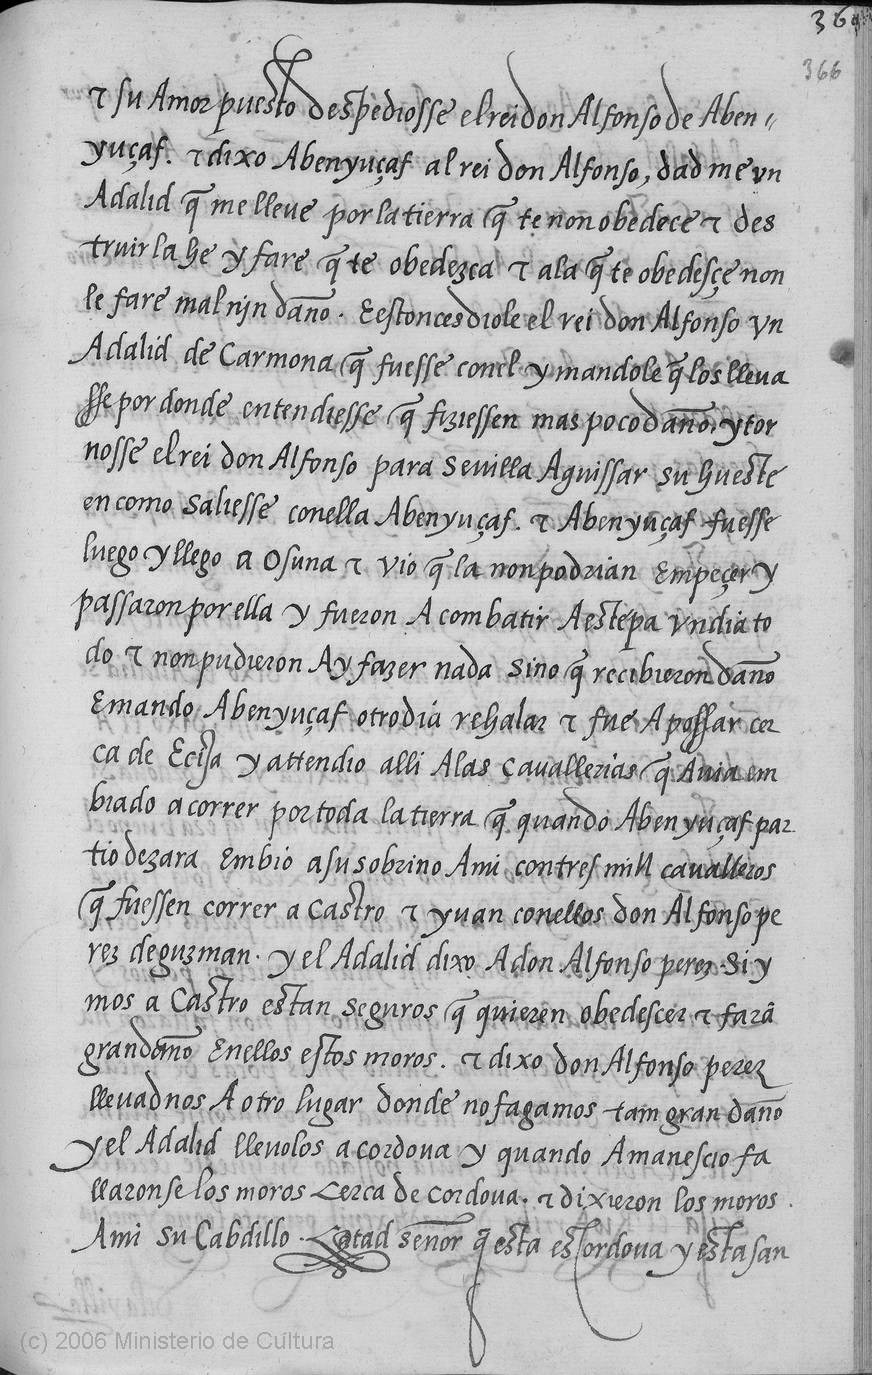 36
366
τ su Amor puesto despediosse el rei don Alfonso de Aben〃
yuçaf. τ dixo Abenyuçaf al rei don Alfonso, dad me vn
Adalid q̃ me lleve por la tierra q̃ te non obedece τ des
truir la he y fare q̃ te obedezca τ ala q̃ te obedesçe non
le fare mal nin daño. E estonces diole el rei don Alfonso vn
Adalid de Carmona q̃ fuesse conel y mandole q̃ los lleua
sse por donde entendiesse q̃ fiziessen mas poco daño. y tor
nosse el rei don Alfonso para Sevilla Aguissar su hueste
en como saliesse conella Abenyuçaf. τ Abenyuçaf fuesse
luego y llego a Osuna τ vio q̃ la non podrian Empeçer y
passaron por ella y fueron A combatir A estepa vn dia to
do τ non pudieron Ay fazer nada sino q̃ recibieron daño
E mando Abenyuçaf otro dia rehalar τ fue A possar cer
ca de Ecija y attendio alli Alas cavallerias q̃ Auia em
biado a correr por toda la tierra q̃ quando Abenyuçaf par
tio dezara Embio a su sobrino Ami con tres mill cavalleros
q̃ fuessen correr a Castro τ yuan conellos don Alfonso pe
rez de guzman. y el Adalid dixo A don Alfonso perez. Si y
mos a Castro estan seguros q̃ quieren obedescer τ farã
gran daño Enellos estos moros. τ dixo don Alfonso perez
llevadnos A otro lugar donde no fagamos tam gran daño
y el Adalid llevolos a cordova y quando Amanescio fa
llaronse los moros cerca de cordova. τ dixieron los moros
Ami su Cabdillo. Catad señor q̃ esta es cordova y esta san
(c) 2006 Ministerio de Cultura